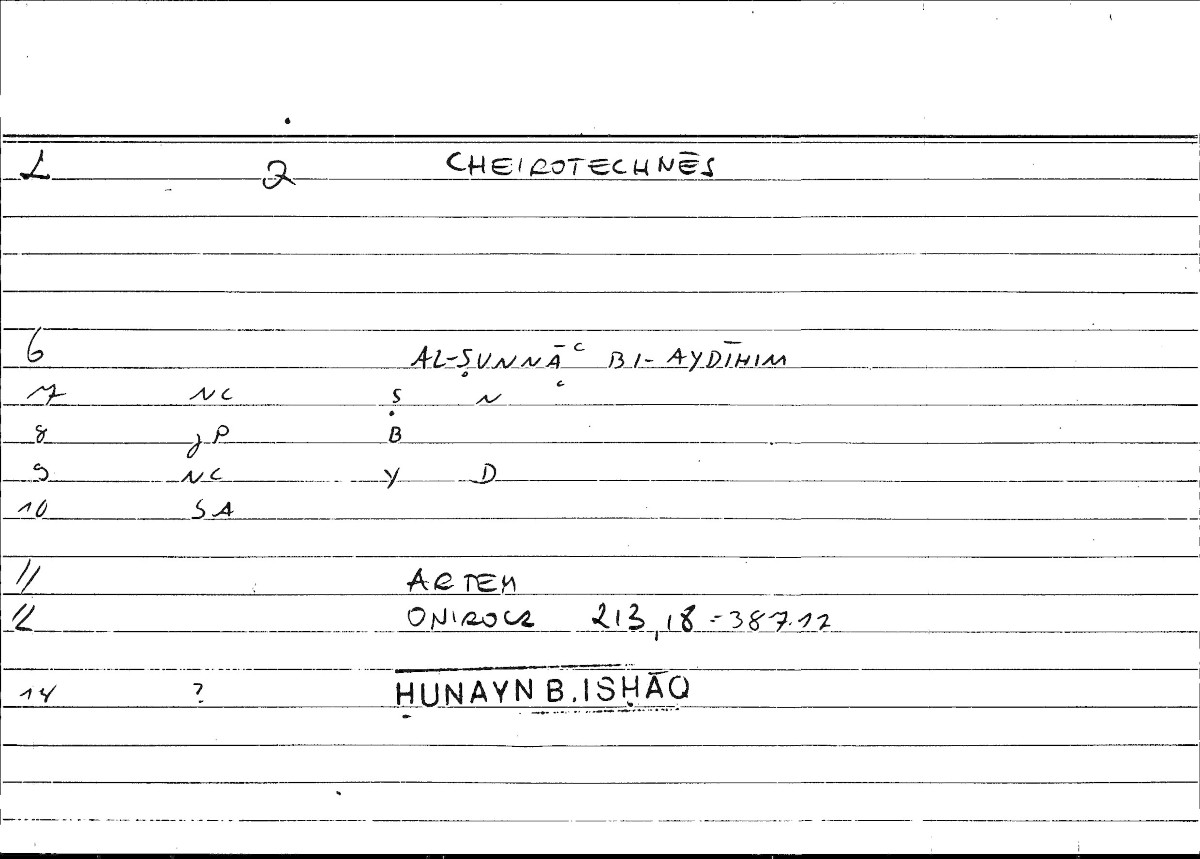 1 2 CHEIROTECHNĒS
6 AL-ṢUNNĀʿ BI-AYDĪHIM
7 NC Ṣ N ʿ
8 JP B
9 NC Y D
10 SA
11 ARTEM
12 ONIROCR 213,18 = 387.12
14 ? ḤUNAYN B. ISḤĀQ